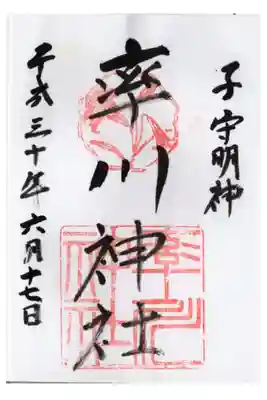 子守明神
率川神社
平成三十年六月十七日
率川神社